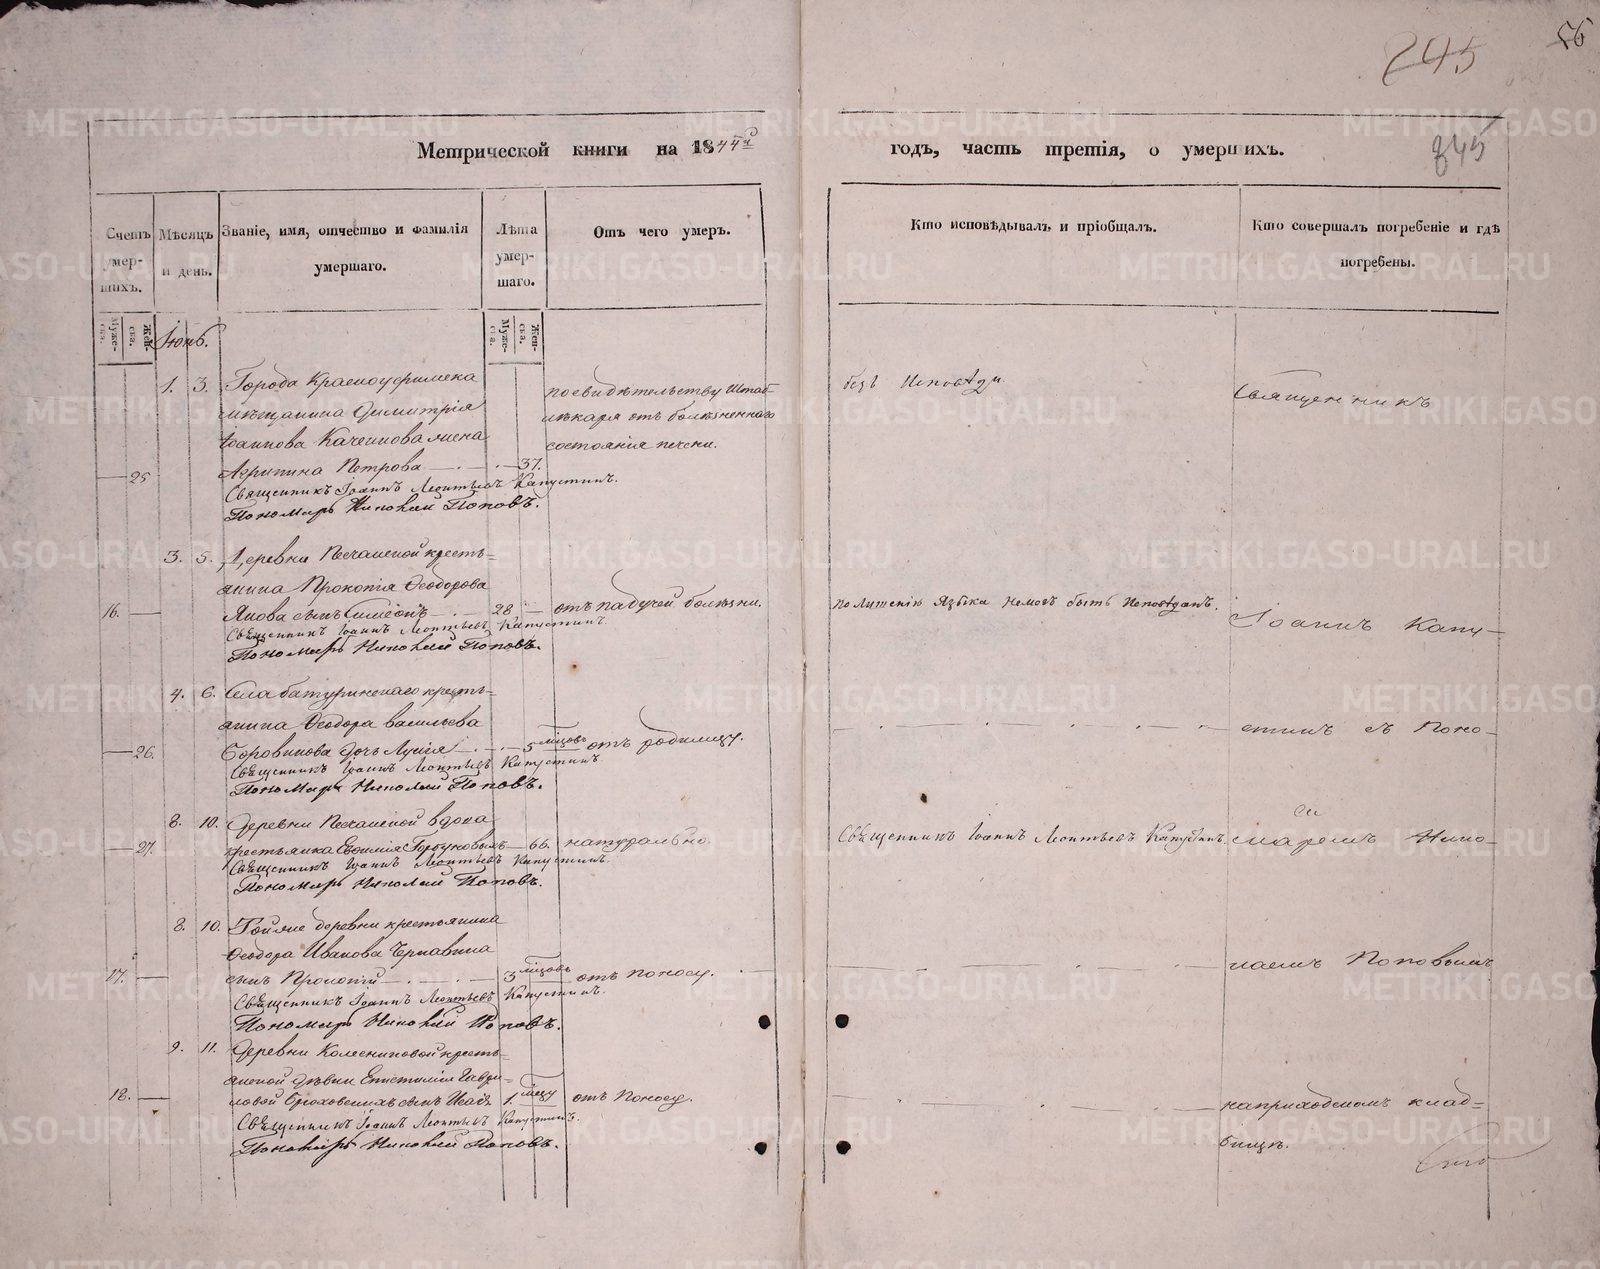 56
245
845
Метрической книги на 1844й годъ, часть третія, о умершихъ.
Счетъ умер-шихъ.
Мѣсяцъ и день.
Званіе, имя, отчество и фамилія умершаго.
Лѣта умер-шаго.
Отъ чего умеръ.
Кто исповѣдывалъ и пріобщалъ.
Кто совершалъ погребеніе и гдѣ погребены.
Муже-ска. Жен-ска.
Муже-ска. Жен-ска.
Іюнь.
1. 3. Города Красноуфимска
мѣщанина Димитрія
Іоаннова жена
25 Агрипина Петрова 37.
по свидѣтельству Штаб-
лѣкаря отъ болѣзненнаго
состоянія печени.
безъ Исповѣди
Священникъ
Священникъ Іоаннъ Леонтьевъ Капустинъ.
Пономарь Николай Поповъ.
3. 5. Деревни Песчаной кресть-
янина Прокопія Ѳеодорова
16. Янова сынъ Симеонъ 28 отъ падучей болѣзни.
по лишенію Языка немогъ быть Исповѣданъ.
Іоаннъ Капу-
Священникъ Іоаннъ Леонтьевъ Капустинъ.
Пономарь Николай Поповъ.
4. 6. Села батуринскаго кресть-
янина Ѳеодора васильева
26. Боровикова дочь 5 мѣсцовъ отъ родимцу.
стинъ съ Поно-
Священникъ Іоаннъ Леонтьевъ Капустинъ
Пономарь Николай Поповъ.
8. 10. Деревни Песчаной вдова
27. крестьянка Евѳимія 66. натурально
Священникъ Іоаннъ Леонтьевъ Капустинъ.
маремъ Нико-
Священникъ Іоаннъ Леонтьевъ Капустинъ.
Пономарь Николай Поповъ.
8. 10. Тойже деревни крестьянина
Ѳеодора Иванова Чернавина
17. сынъ Прокопій 3 мѣсцовъ отъ поносу.
лаемъ Поповымъ
Священникъ Іоаннъ Леонтьевъ Капустинъ.
Пономарь Николай Поповъ.
9. 11. Деревни Колесниковой кресть-
янской дѣвки Гаври-
18. ловой сынъ 1. мѣсцу отъ Поносу.
на приходскомъ клад-
бищѣ.
Священникъ Іоаннъ Леонтьевъ Капустинъ.
Пономарь Николай Поповъ.
METRIKI.GASO-URAL.RU